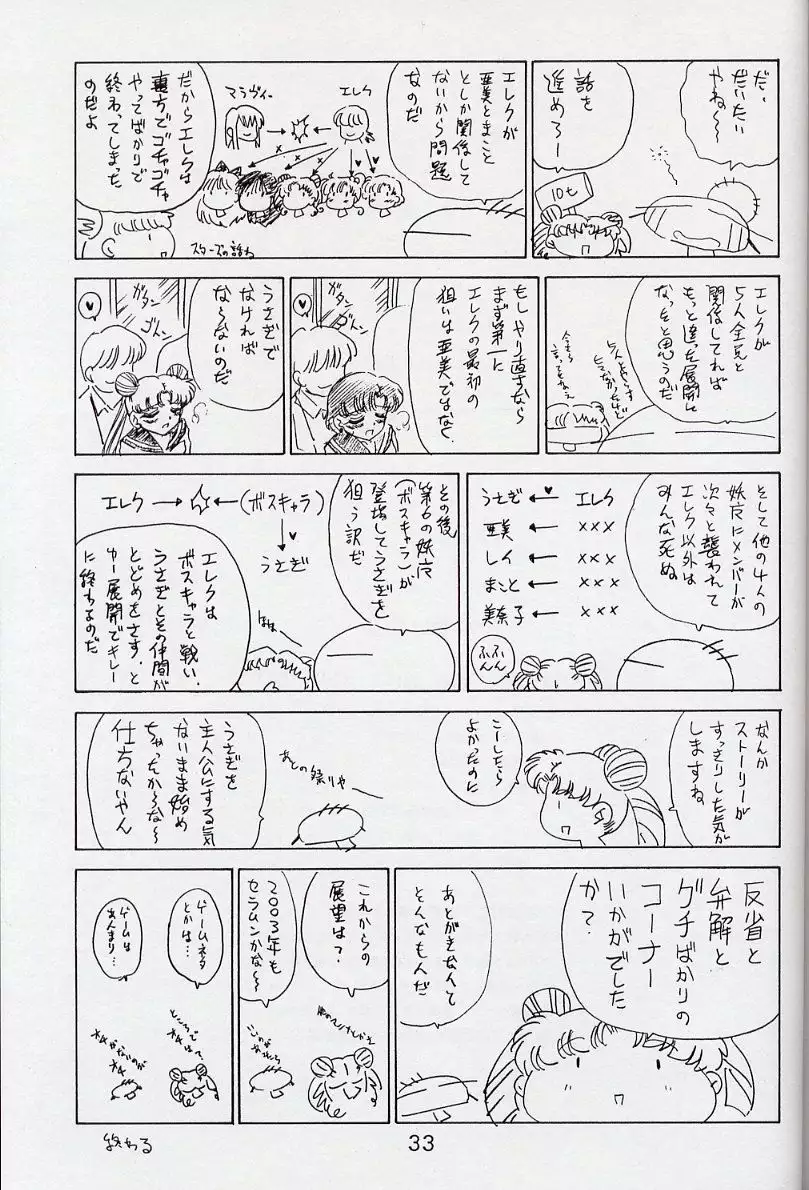 だ、
だいたい
やね〜〜
話を
進めろー
10t
エレクが
亜美とまこと
としか関係して
ないから問題
なのだ
エレク
マラヴィー
スターズの話ね
だからエレクは
裏方でゴチャゴチャ
やってばかりで
終わってしまった
のだよ
エレクが
5人全員と
関係してれば
もっと違った展開に
なったと思うのだ
もしやり直すなら
まず第一に
エレクの最初の
狙いは亜美ではなく、
ガタン
ゴトン
うさぎで
なければ
ならないのだ
ガタン
ゴトン
そして他の4人の
妖魔にメンバーが
次々と襲われて
エレク以外は
みんな死ぬ
エレク
×××
×××
×××
×××
うさぎ
亜美
レイ
まこと
美奈子
ふふん
ふん
その後
第6の妖魔
(ボスキャラ)が
登場してうさぎを
狙う訳だ
エレク
(ボスキャラ)
うさぎ
エレクは
ボスキャラと戦い、
うさぎとその仲間が
とどめをさす、と
ゆー展開でキレー
に終わるのだ
なんか
ストーリーが
すっきりした気が
しますね
こーしたら
よかったのに
あとの祭りや
うさぎを
主人公にする気
ないまま始め
ちゃったからな〜
仕方ないやん
反省と
弁解と
グチばかりの
コーナー
いかがでした
か?
あとがきなんて
そんなもんだ
これからの
展望は?
2003年も
セラムンかな〜
ゲームネタ
とかは…
ゲームは
あんまり…
終わる
33